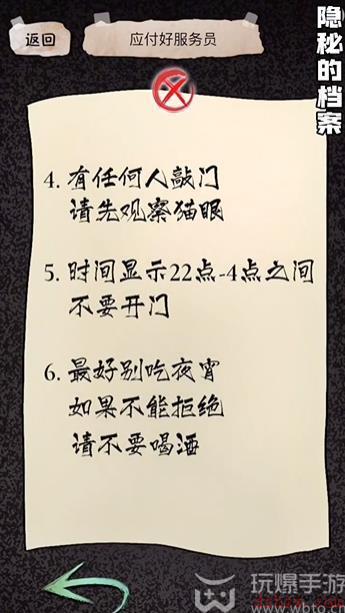 返回
应付好服务员
隐秘的档案
4. 有任何人敲门
请先观察猫眼
5. 时间显示22点-4点之间
不要开门
6. 最好别吃夜宵
如果不能拒绝
请不要喝酒
玩爆手游
www.wbto.cn